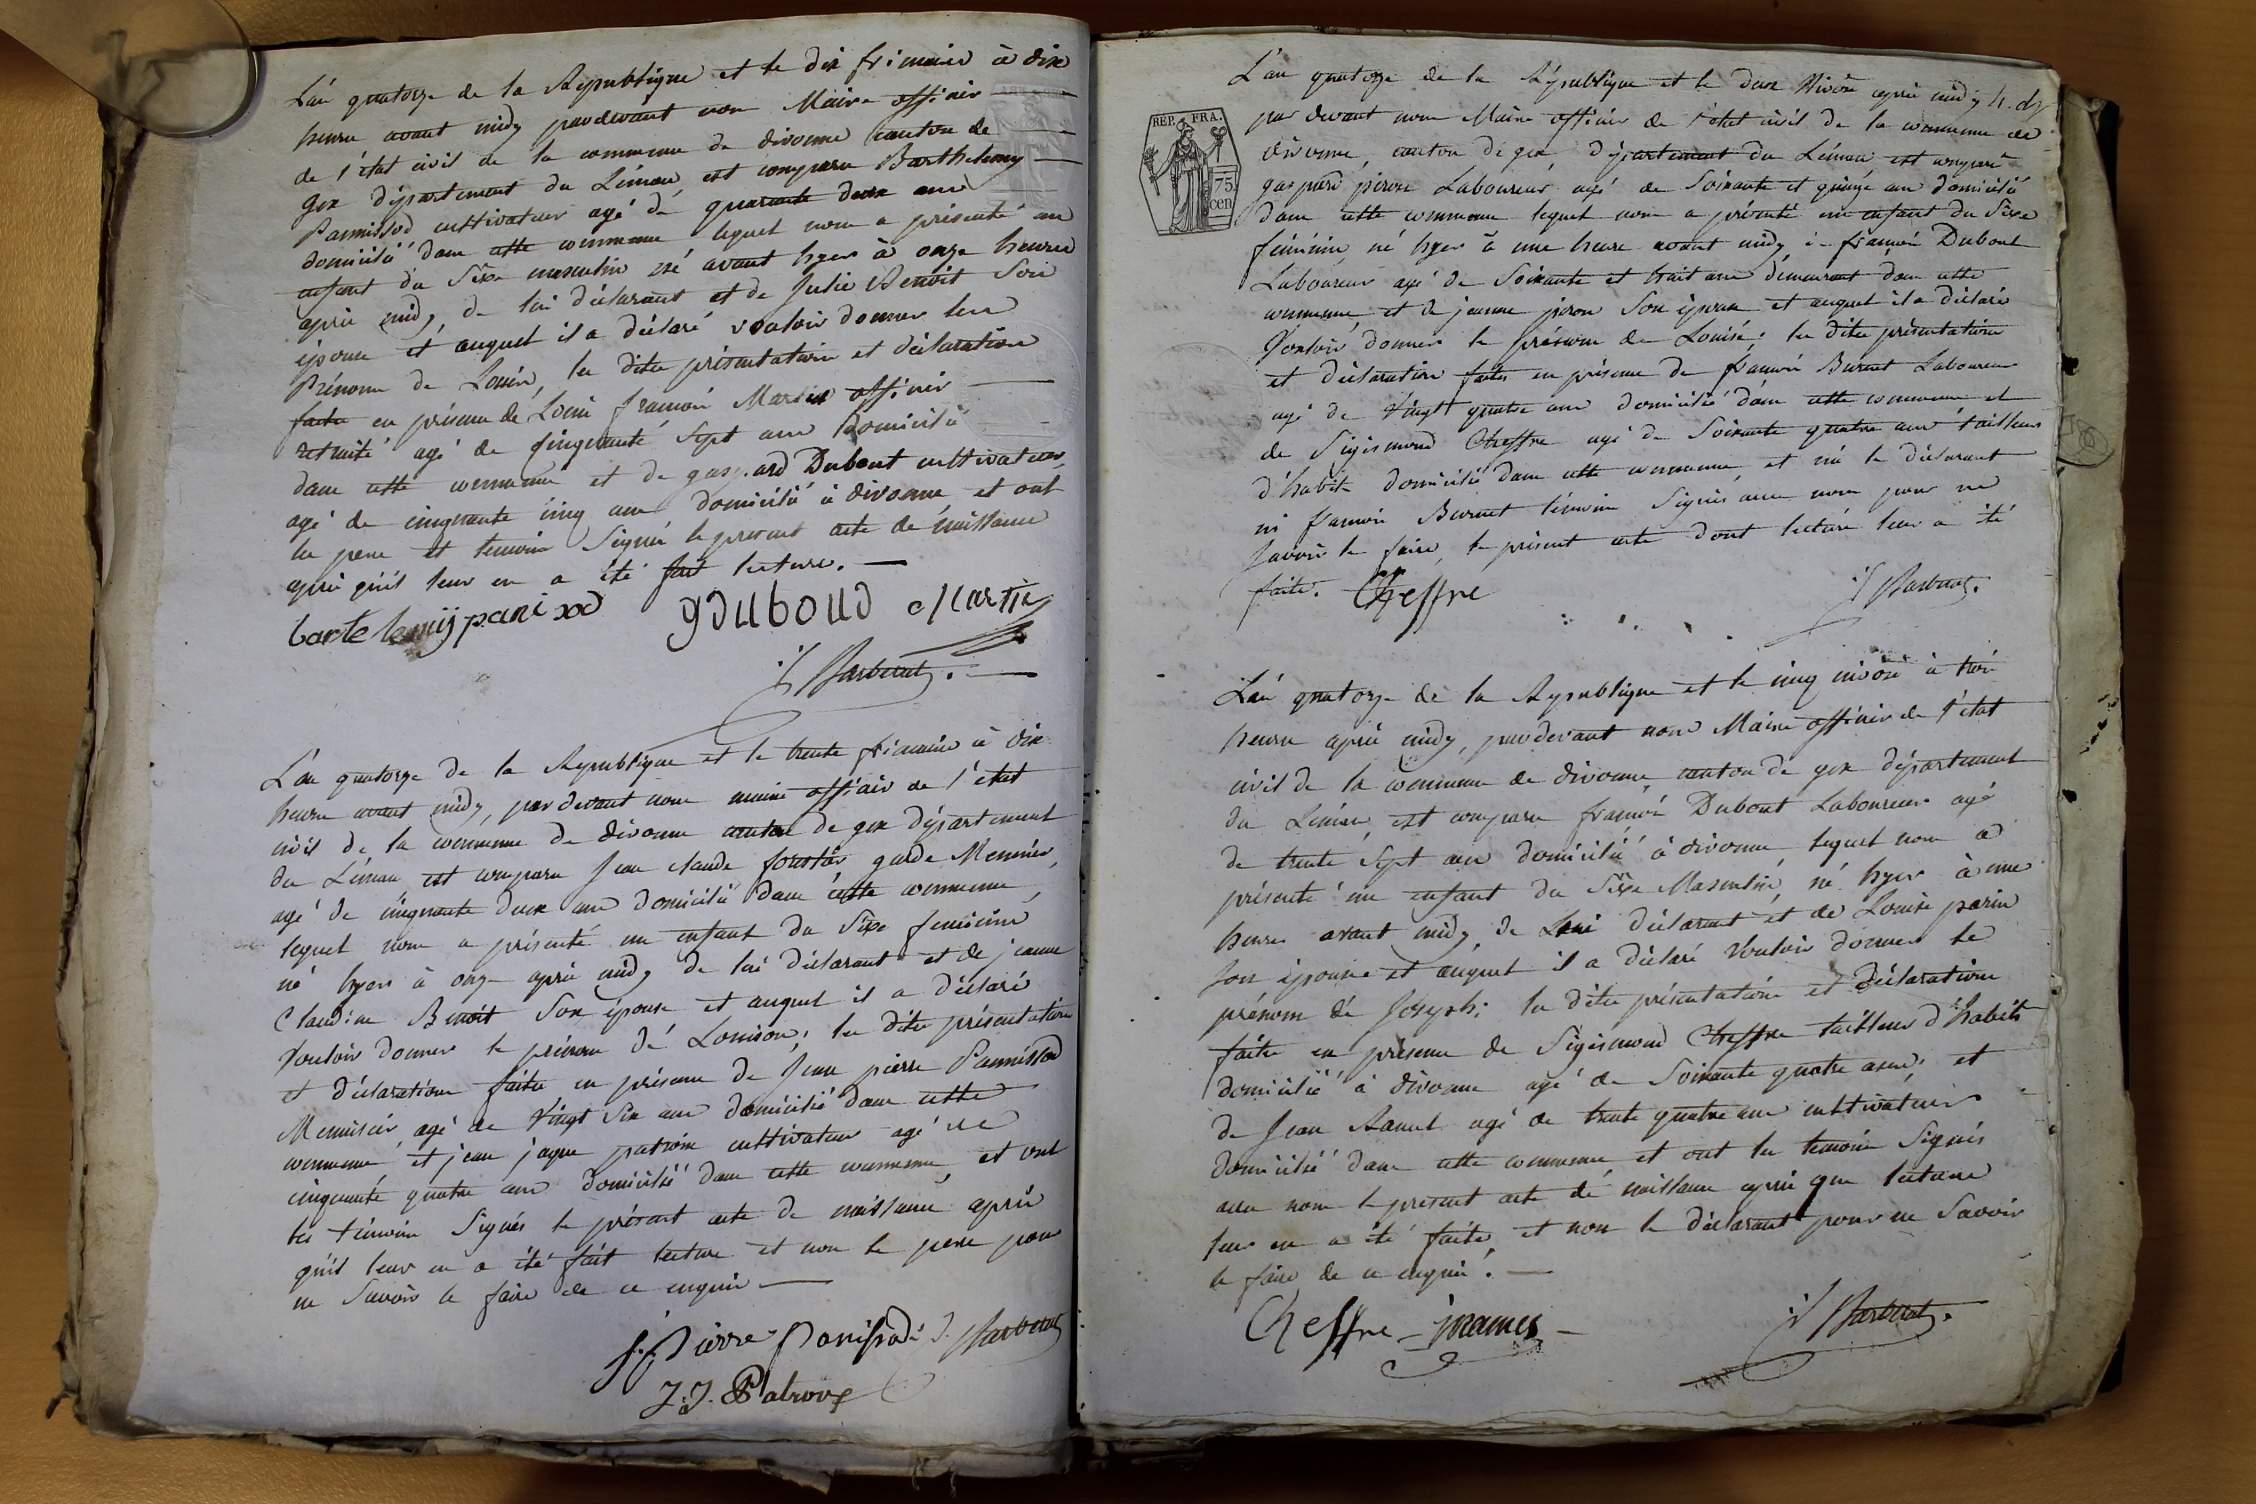 L'an quatorze de la République et le dix frimaire à dix
heure avant midy pardevant nous Maire officier
de l'état civil de la commune de divonne canton de
Gex département du Léman est comparu Barthelemy
Pannissod cultivateur agé de quarante deux ans
domicilié dans cette commune lequel nous a présenté un
enfant du Sèxe masculin né avant hyer à onze heures
après midy, de lui déclarant et de Julie Benoit Son
épouse et auquel il a déclaré vouloir donner les
Prénoms de Louis, les dites présentation et déclaration
faites en présence de Louis françois Martin officier
retraité agé de cinquante Sept ans domicilié
dans cette commune et de gaspard Dubout cultivateur,
agé de cinquante cinq ans domicilié à divonne et ont
les pere et temoins Signé le present acte de naissance
après qu'il leur en a été fait lecture.
bartelemij panixod gduboud Martin
J Barberat.
L'an quatorze de la République et le trente frimaire à dix
heure avant midy, par devant nous maire officier de l'état
civil de la commune de divonne canton de gex département
du Léman est comparu Jean claude forestier garde Meunier
agé de cinquante deux ans domicilié dans cette commune,
lequel nous a présenté un enfant du Sèxe feminin
né hyer à onze après midy de lui déclarant et de jeanne
Claudine Benoit Son épouse et auquel il a déclaré
Vouloir donner le prénom de Louison; les dites présentation
et déclaration faites en présence de Jean pierre Pannissod
Menuisier, agé de Vingt Six ans domicilié dans cette
commune et jean jaque patroix cultivateur agé de
cinquante quatre ans domicilié dans cette commune, et ont
les témoins Signés le présent acte de naissance après
qu'il leur en a été fait lecture et non le pere pour
ne Savoir le faire de ce enquis
J. Pierre Panissod J. Barberat
J.J. Patroux
L'an quatorze de la République et le deux Nivôse après midy
REP. FRA.
75.
cen
par devant nous Maire officier de l'état civil de la commune de
divonne, canton de gex, département du Léman est comparu
gaspard pirou Laboureur agé de Soixante et quinze ans domicilié
dans cette commune lequel nous a présenté un enfant du Sèxe
féminin, né hyer à une heure avant midy de françois Dubout
Laboureur agé de Soixante et huit ans demeurant dans cette
commune et de jeanne pirou Son épouse et auquel il a déclaré
Vouloir donner le prénom de Louise: les dites présentation
et déclaration faites en présence de françois Burnet Laboureur
agé de Vingt quatre ans domicilié dans cette commune et
de Sigismond Cheffre agé de Soixante quatre ans tailleur
d'habits domicilié dans cette commune et ni le déclarant
ni françois Burnet témoin Signés avec nous pour ne
Savoir le faire, le présent acte dont lecture leur a été
faite. Cheffre J Barberat.
L'an quatorze de la République et le cinq nivôse à trois
heure après midy, pardevant nous Maire officier de l'état
civil de la commune de divonne, canton de gex département
du Léman, est comparu françois Dubout Laboureur agé
de trente Sept ans domicilié à divonne lequel nous a
présenté un enfant du Sèxe Masculin, né hyer à une
heure avant midy, de Lui déclarant et de Louise parin
Son épouse et auquel il a déclaré Vouloir donner le
prénom de Joseph; les dites présentation et déclaration
faites en présence de Sigismond Cheffre tailleur d'habits
domicilié à divonne agé de Soixante quatre ans, et
de Jean Ramel agé de trente quatre ans cultivateur
domicilié dans cette commune et ont les temoins Signés
avec nous le present acte de naissance après que lecture
leur en a été faite, et non le déclarant pour ne Savoir
le faire de ce enquis.
Cheffre J Barberat.